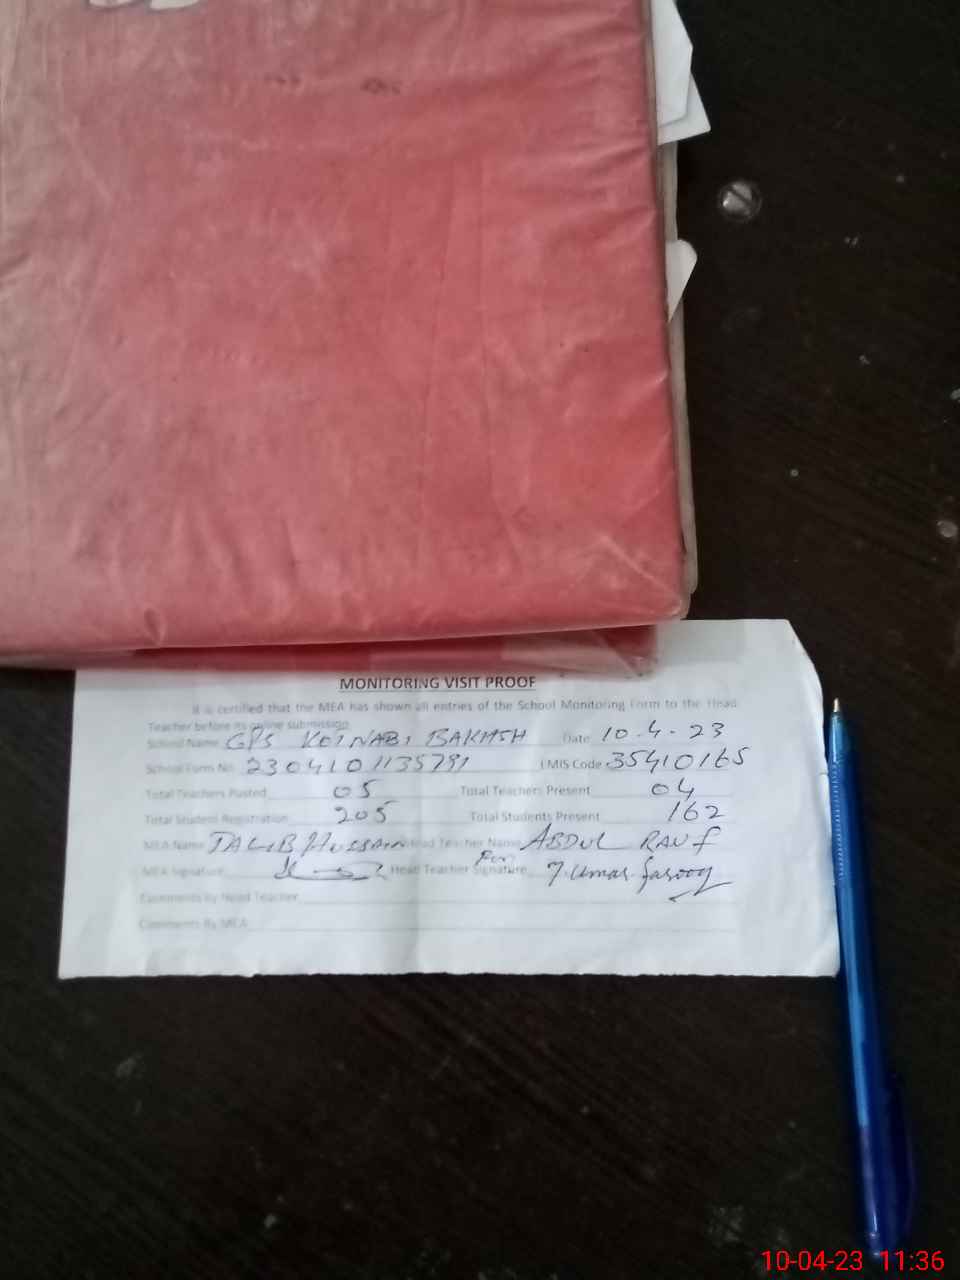 MONITORING VISIT PROOF
It is certified that the MEA has shown all entries of the School Monitoring Form to the Head
Teacher before its online submission
School Name GPS KOT NABI BAKHSH Date 10-4-23
School Form No 2304101135791 EMIS Code 35410165
Total Teachers Posted 05 Total Teachers Present 04
Total Student Registration 205 Total Students Present 162
MEA Name TALIB HUSSAIN Head Teacher Name ABDUL RAUF
MEA Signature Head Teacher Signature For Umar farooq
Comments by Head Teacher
Comments By MEA
10-04-23 11:36